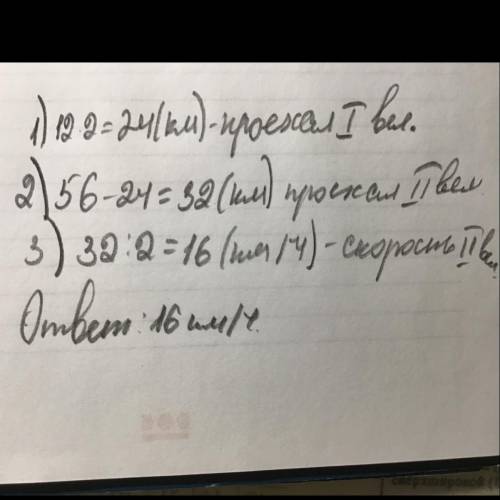 1) 12·2=24(км)-проехал I вел.
2) 56-24=32(км) проехал II вел
3) 32:2=16(км/ч)-скорость II вел.
Ответ: 16 км/ч.